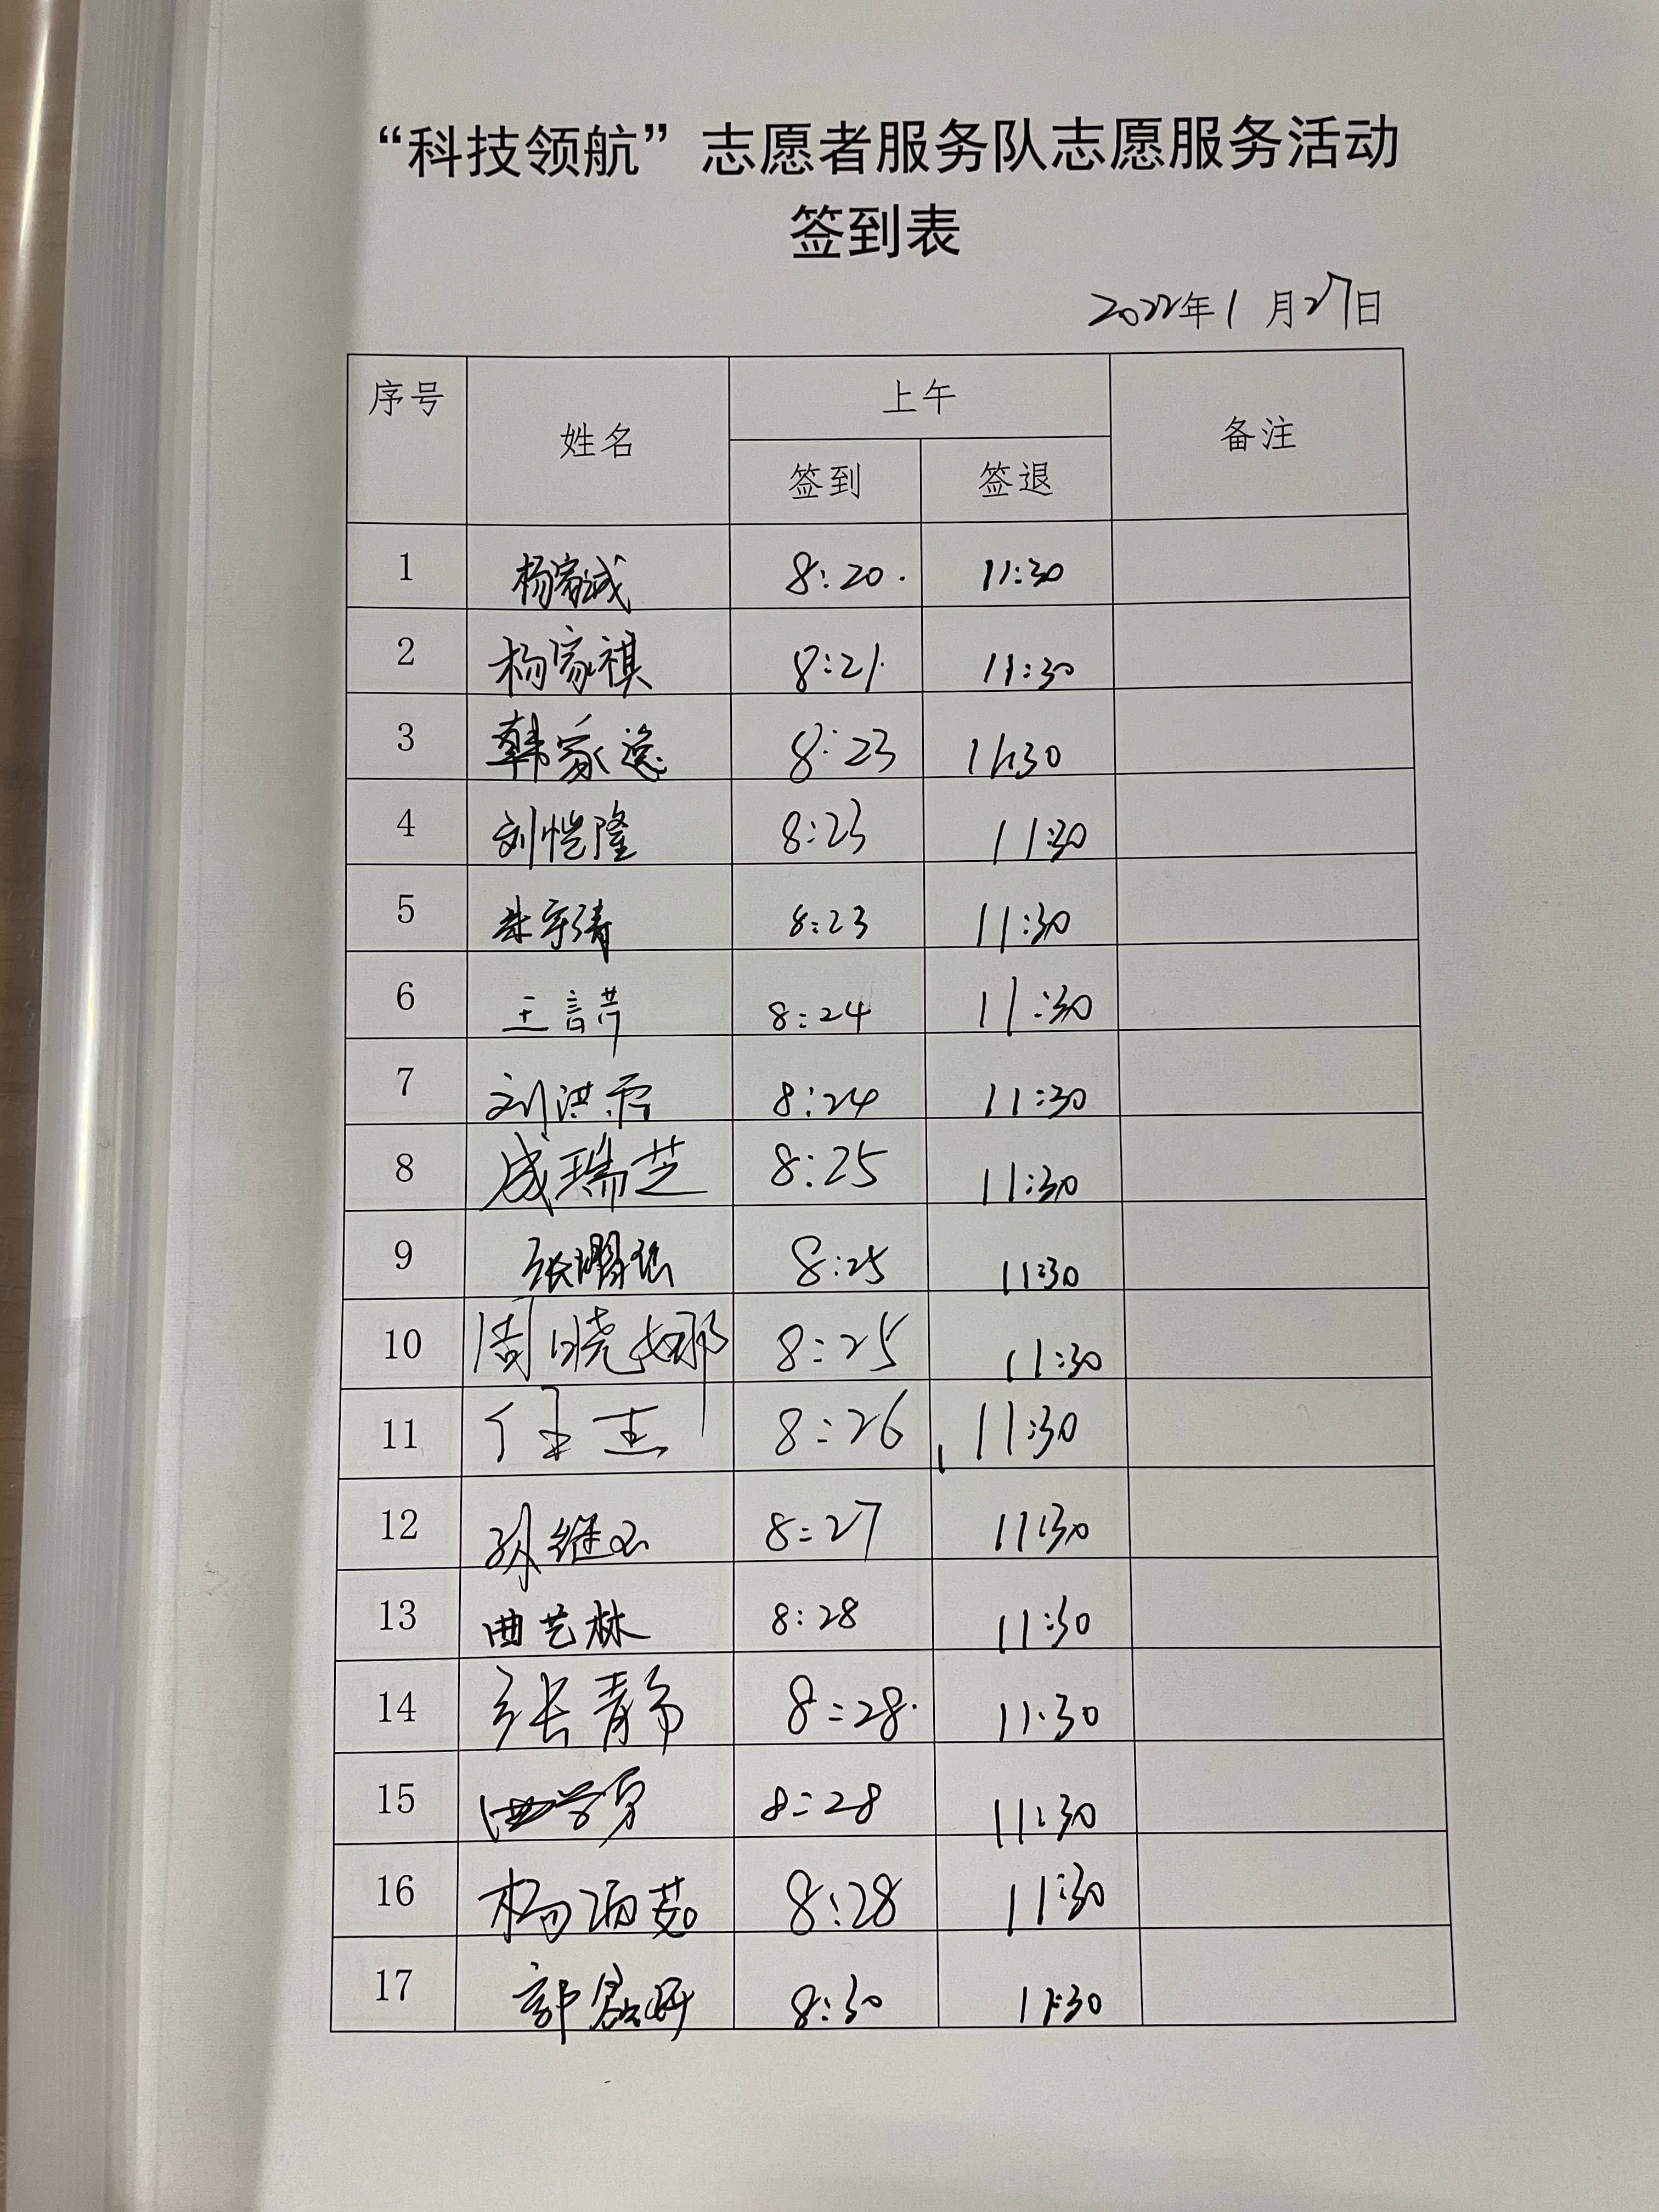 “科技领航”志愿者服务队志愿服务活动
签到表
2022年1月27日
序号 姓名 上午 备注
签到 签退
1 杨家诚 8:20. 11:30
2 杨家祺 8:21. 11:30
3 韩家逸 8:23 11:30
4 刘恺隆 8:23 11:30
5 8:23 11:30
6 王 8:24 11:30
7 刘洪霞 8:24 11:30
8 成瑞芝 8:25 11:30
9 张 8:25 11:30
10 周晓娜 8:25 11:30
11 任杰 8:26 11:30
12 孙继 8:27 11:30
13 曲艺林 8:28 11:30
14 张静 8:28. 11:30
15 8:28 11:30
16 杨茹 8:28 11:30
17 郭 8:30 11:30